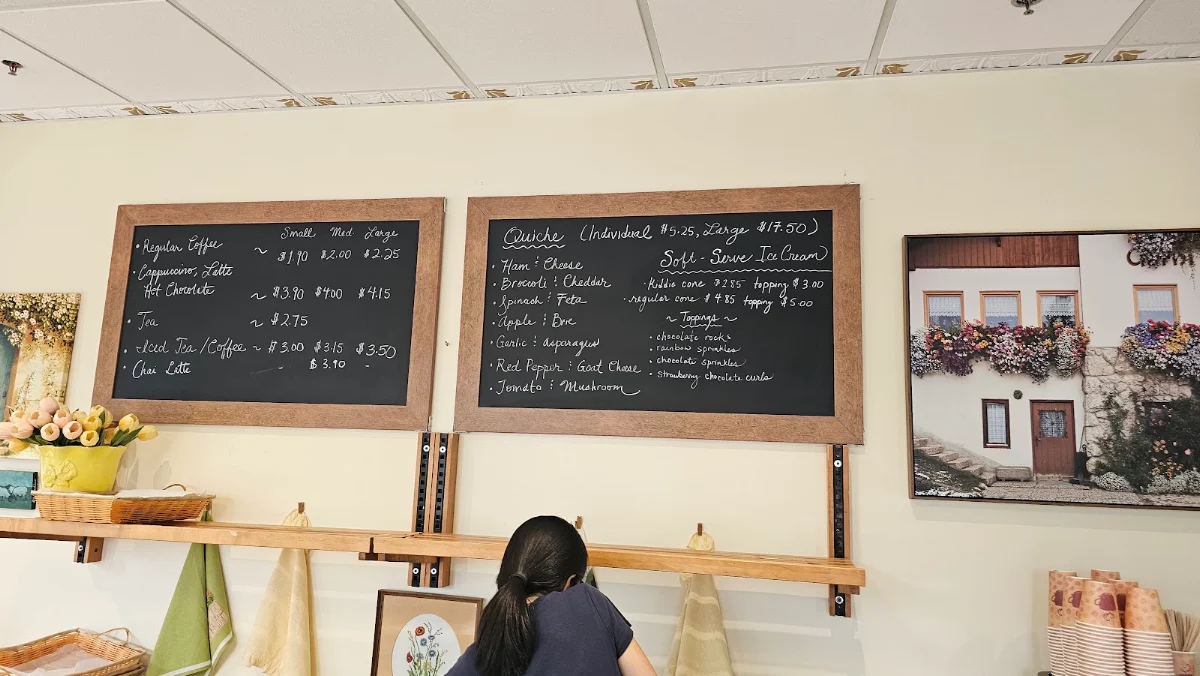 Small Med. Large
• Regular Coffee ~ $1.90 $2.00 $2.25
• Cappuccino, Latte
Hot Chocolate ~ $3.90 $4.00 $4.15
• Tea ~ $2.75
• Iced Tea/Coffee ~ $3.00 $3.15 $3.50
• Chai Latte - $3.90 -
Quiche (Individual $5.25, Large $17.50)
• Ham & Cheese
• Brocoli & Cheddar
• Spinach & Feta
• Apple & Brie
• Garlic & Asparagus
• Red Pepper & Goat Cheese
• Tomato & Mushroom
Soft-Serve Ice Cream
• Kiddie cone $2.85 topping $3.00
• regular cone $4.85 topping $5.00
~ Toppings ~
• chocolate rocks
• rainbow sprinkles
• chocolate sprinkles
• Strawberry chocolate curls